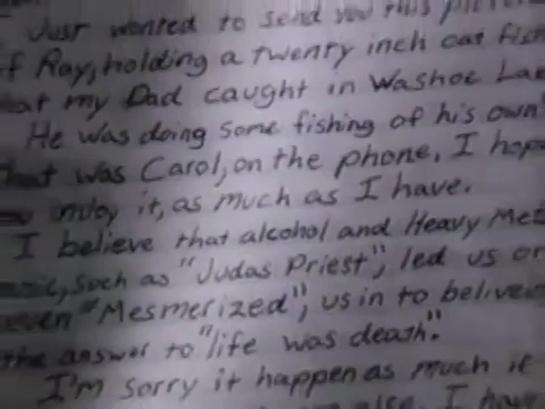 Just wanted to send you this
f Ray, holding a twenty inch cat fish
at my Dad caught in Washoe
He was doing some fishing of his own
that was Carol, on the phone. I hop
injoy it, as much as I have.
I believe that alcohol and Heavy Met
such as "Judas Priest", led us or
even "Mesmerized", us in to belive
the answer to "life was death."
I'm sorry it happen as much if
I have